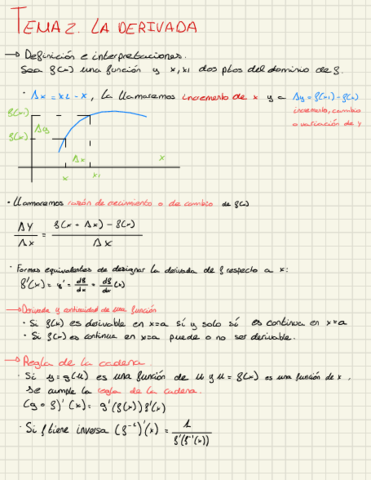 TEMA 2. LA DERIVADA
→ Definición e interpretaciones.
Sea f(x) una función y x, x₁ dos ptos del dominio de f.
· Δx = x₁ - x, la llamaremos incremento de x y a Δy = f(x₁) - f(x)
incremento, cambio
o variación de y
f(x₁)
Δy
f(x)
Δx
x
x₁
x
· Llamaremos razón de crecimiento o de cambio de f(x)
Δy/Δx = f(x - Δx) - f(x)/Δx
· Formas equivalentes de designar la derivada de f respecto a x:
f'(x) = y' = df/dx = df/dx (x)
→ Derivada y continuidad de una función
· Si f(x) es derivable en x=a sí y solo sí es continua en x=a
· Si f(x) es continua en x=a puede o no ser derivable.
→ Regla de la cadena
· Si y = g(u) es una función de u y u = f(x) es una función de x,
se cumple la regla de la cadena.
(g∘f)'(x) = g'(f(x)) f'(x)
· Si f tiene inversa (f⁻¹)'(x) = 1/f'(f⁻¹(x))